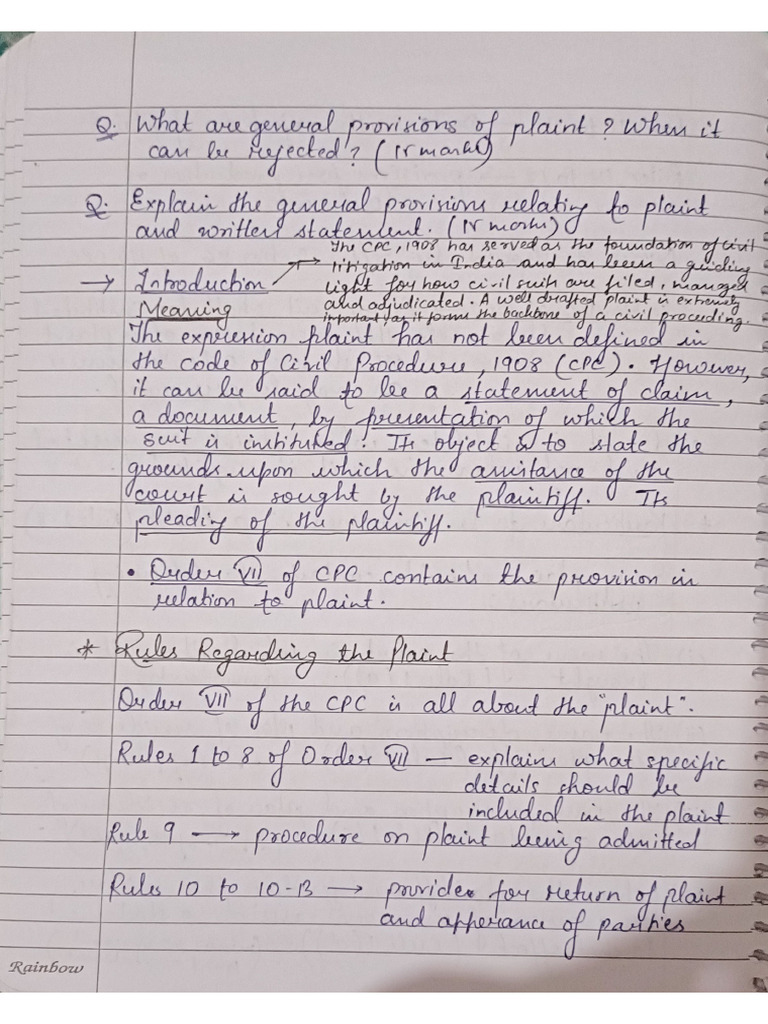 Q. What are general provisions of plaint? When it
can be rejected? (15 marks)
Q. Explain the general provisions relating to plaint
and written statement. (15 marks)
The CPC, 1908 has served as the foundation of civil
litigation in India and has been a guiding
→ Introduction → light for how civil suits are filed, managed
and adjudicated. A well drafted plaint is extremely
important, as it forms the backbone of a civil proceeding.
Meaning
The expression plaint has not been defined in
the code of Civil Procedure, 1908 (CPC). However,
it can be said to be a statement of claim,
a document, by presentation of which the
suit is instituted. Its object is to state the
grounds upon which the assistance of the
court is sought by the plaintiff. Its
pleading of the plaintiff.
• Order VII of CPC contains the provision in
relation to plaint.
* Rules Regarding the Plaint
Order VII of the CPC is all about the "plaint".
Rules 1 to 8 of Order VII — explains what specific
details should be
included in the plaint
Rule 9 → procedure on plaint being admitted
Rules 10 to 10-B → provides for return of plaint
and apperance of parties
Rainbow